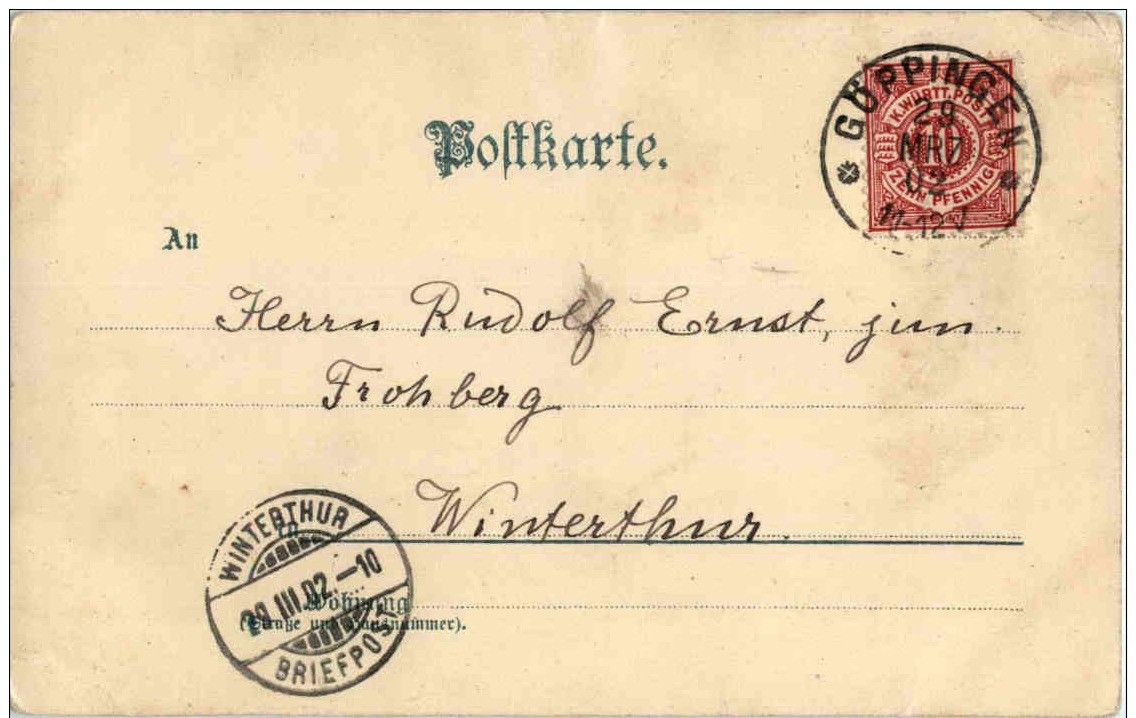 Postkarte.
GÖPPINGEN
29
MRZ
02
11-12 V
K. WÜRTT. POST
10
ZEHN PFENNIG
An
Herrn Rudolf Ernst, jun.
Frohberg
Winterthur.
in
WINTERTHUR
29.III.02.–10
BRIEFPOST
Wohnung
(Straße und Hausnummer).